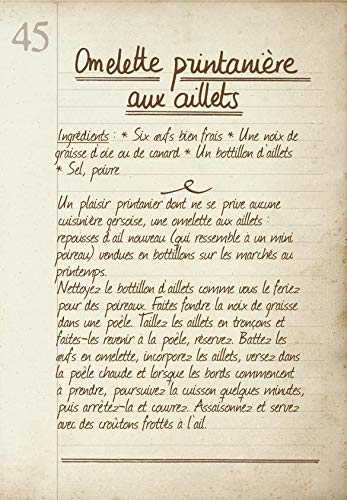 45
Omelette printanière
aux aillets
Ingrédients : * Six œufs bien frais * Une noix de
graisse d'oie ou de canard * Un bottillon d'aillets
* Sel, poivre
Un plaisir printanier dont ne se prive aucune
cuisinière gersoise, une omelette aux aillets :
repousses d'ail nouveau (qui ressemble à un mini
poireau) vendues en bottillons sur les marchés au
printemps.
Nettoyez le bottillon d'aillets comme vous le feriez
pour des poireaux. Faites fondre la noix de graisse
dans une poêle. Taillez les aillets en tronçons et
faites-les revenir à la poêle, réservez. Battez les
œufs en omelette, incorporez les aillets, versez dans
la poêle chaude et lorsque les bords commencent
à prendre, poursuivez la cuisson quelques minutes,
puis arrêtez-la et couvrez. Assaisonnez et servez
avec des croûtons frottés à l'ail.